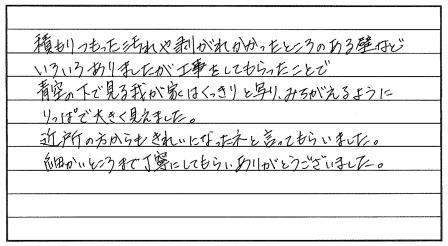 積もりつもった汚れや剥がれかかったところのある壁など
いろいろありましたが工事をしてもらったことで
青空の下で見る我が家はくっきりと写り、みちがえるように
りっぱで大きく見えました。
近所の方からもきれいになったネと言ってもらいました。
細かいところまで丁寧にしてもらいありがとうございました。